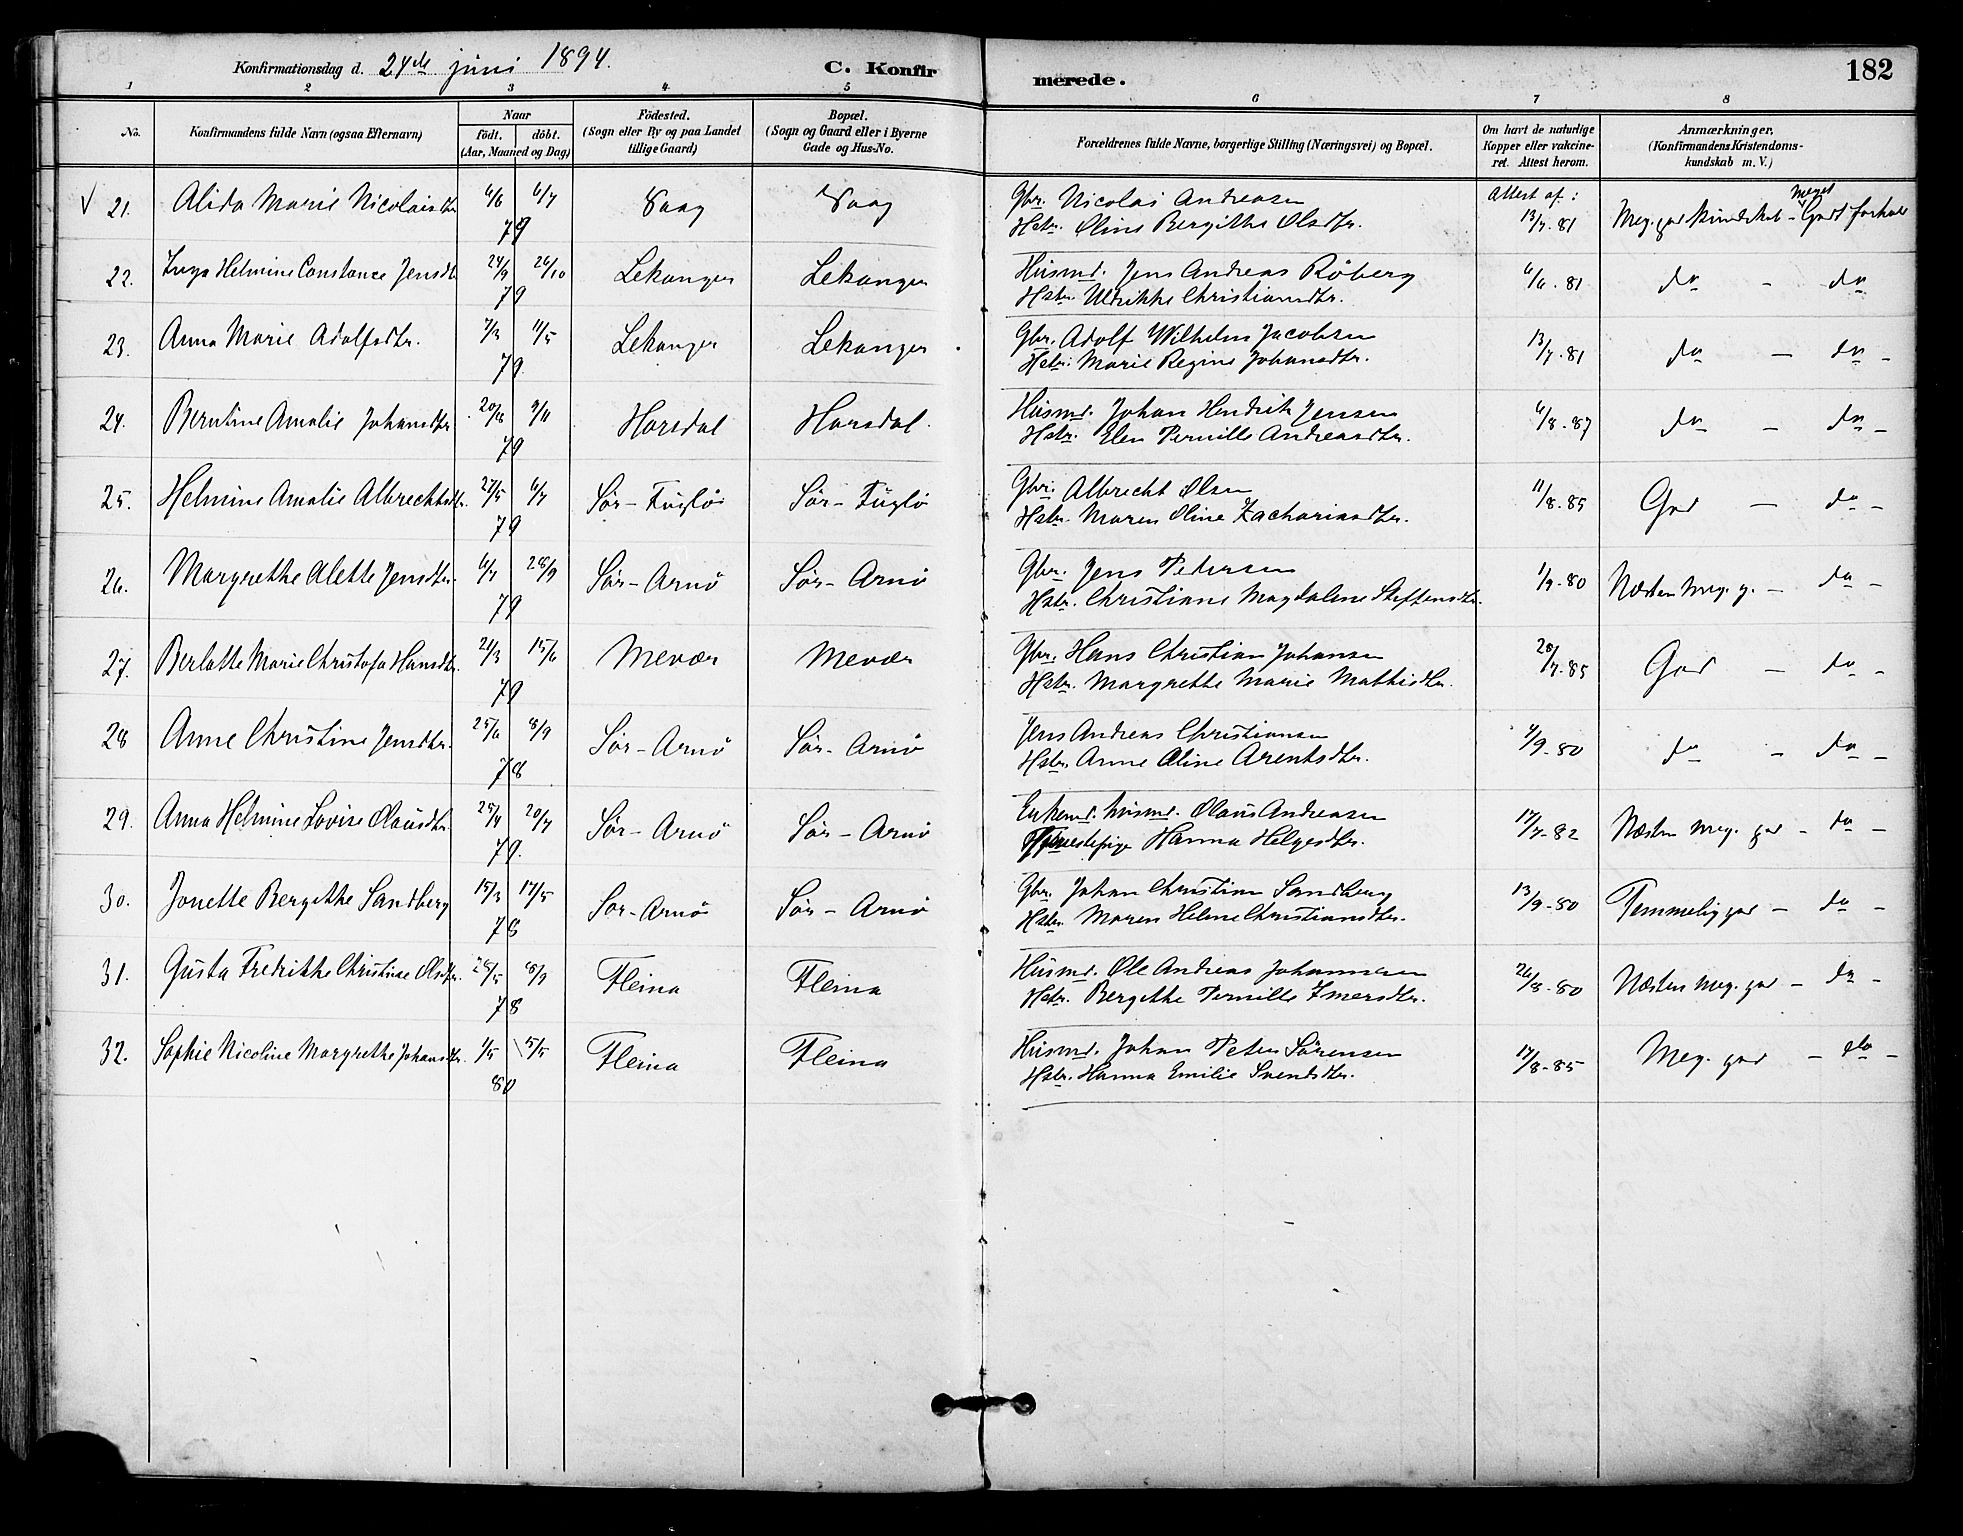 Konfirmationsdag d. 24de juni 1894.
C. Konfir
merede.
182
1 2 3 4 5 6 7 8
No.
Konfirmandens fulde Navn (ogsaa Efternavn)
Naar
födt. döbt.
(Aar, Maaned og Dag)
Födested.
(Sogn eller By og paa Landet
tillige Gaard)
Bopæl.
(Sogn og Gaard eller i Byerne
Gade og Hus-No.
Forældrenes fulde Navne, borgerlige Stilling (Næringsvei) og Bopæl.
Om havt de naturlige
Kopper eller vakcine-
ret. Attest herom.
Anmærkninger,
(Konfirmandens Kristendoms-
kundskab m. V.)
Attest af:
21. Alida Marie Nicolaisdtr 6/7 Vaag Vaag Gbr. Nicolai Andreasen 13/7.81 Meg. god kundskab - Meget Godt forhold
79 Hstr. Oline Bergithe Olsdtr.
22. Inga Helmine Constance Jensdtr 24/9 26/10 Lekanger Lekanger Husmd. Jens Andreas Röberg 6/6.81 do - do
79 Hstr. Uldrikke Christiansdtr.
23. Anna Marie Adolfsdtr. 7/3 11/5 Lekanger Lekanger Gbr. Adolf Wilhelm Jacobsen 13/7.81 do - do -
79. Hstr. Marie Regine Johansdtr.
24. Berntine Amalie Johansdtr 9/11 Horsdal Horsdal. Husmd. Johan Hendrik Jensen 6/8.87 do - do -
79 Hstr. Elen Pernille Andreasdtr.
25. Helmine Amalie Albrechtsdtr. 27/5 6/7 Sör-Fuglö Sör-Fuglö Gbr. Albrecht Olsen 11/8.85 God - do -
79 Hstr. Maren Oline Zachariasdtr.
26. Margrethe Alette Jensdtr. 6/7 28/9 Sör-Arnö Sör-Arnö Gbr. Jens Petersen 1/9.80 Næsten meg. g. - do -
79 Hstr. Christiane Magdalene Steffensdtr.
27. Berlatte Marie Christofa Hansdtr. 21/3 15/6 Mevær Mevær Gbr. Hans Christian Johansen 28/7.85 God - do -
79 Hstr. Margrethe Marie Mathisdtr.
28 Anne Christine Jensdtr. 25/6 8/9 Sör-Arnö Sör-Arnö Jens Andreas Christiansen 4/9.80 do - do -
78 Hstr. Anne Oline Arentsdtr.
29. Anna Helmine Lovise Olausdtr. 20/7 Sör-Arnö Sör-Arnö Enkemd. husmd. Olaus Andreasen 17/7.82 Næsten meg. god - do -
79. Tjenestepige Hanna Helgesdtr.
30. Jonette Bergithe Sandberg 15/3 17/5 Sör-Arnö Sör-Arnö Gbr. Johan Christian Sandberg 13/9.80 Temmelig god - do -
78 Hstr. Maren Helene Christiansdtr.
31. Gusta Fredrikke Christine Olsdtr. 28/5 8/9 Fleina Fleina Husmd. Ole Andreas Johannesen 26/8.80 Næsten meg. god - do -
78 Hstr. Bergithe Pernille Imersdtr.
32. Sophie Nicoline Margrethe Johansdtr. 1/5 Fleina Fleina Husmd. Johan Peter Sörensen 17/8.85 Meg. god - do -
80 Hstr. Hanna Emilie Svendsdtr.